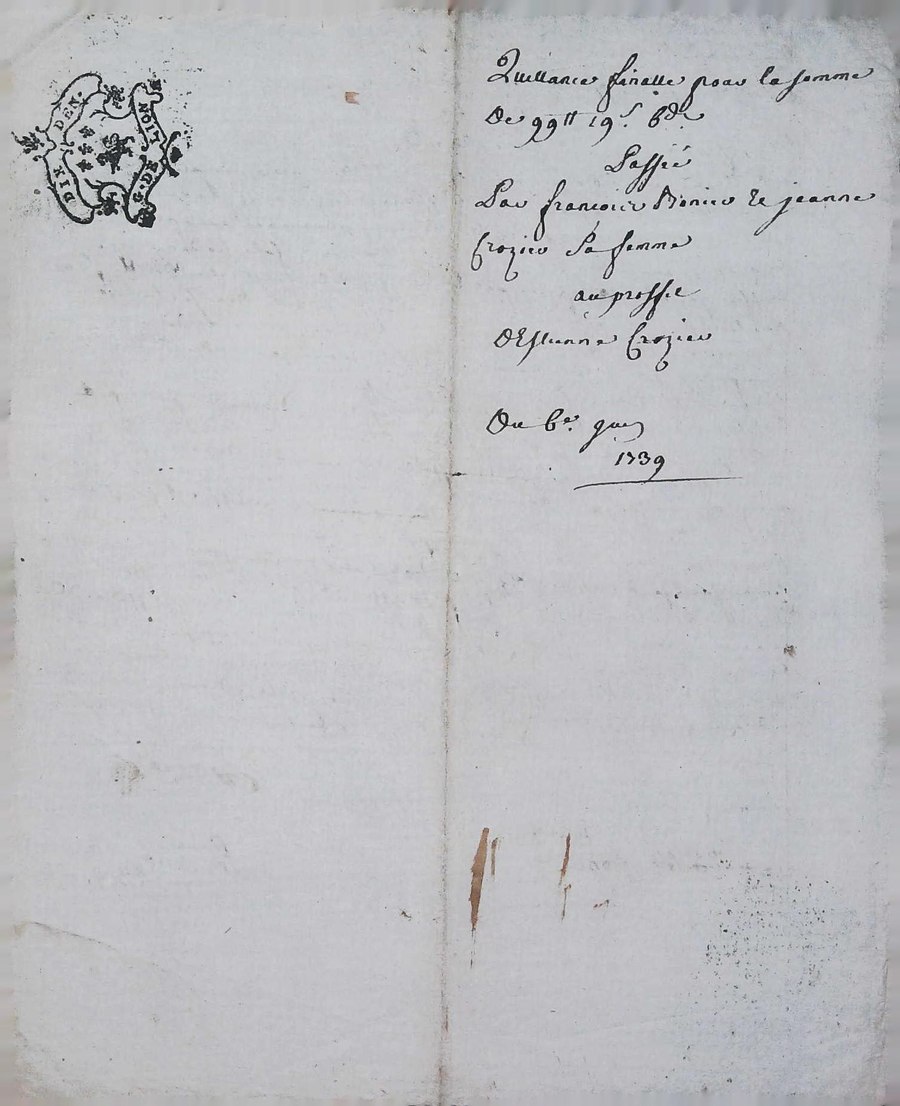 DIX DEN.
G. DE LION
Quittance finalle pour la somme
De 99tt 19s. 6ds.
Passée
Par francois Bonier Et jeanne
Crozier Sa femme
au proffit
D'Estienne Crozier
Du 6e.
1739